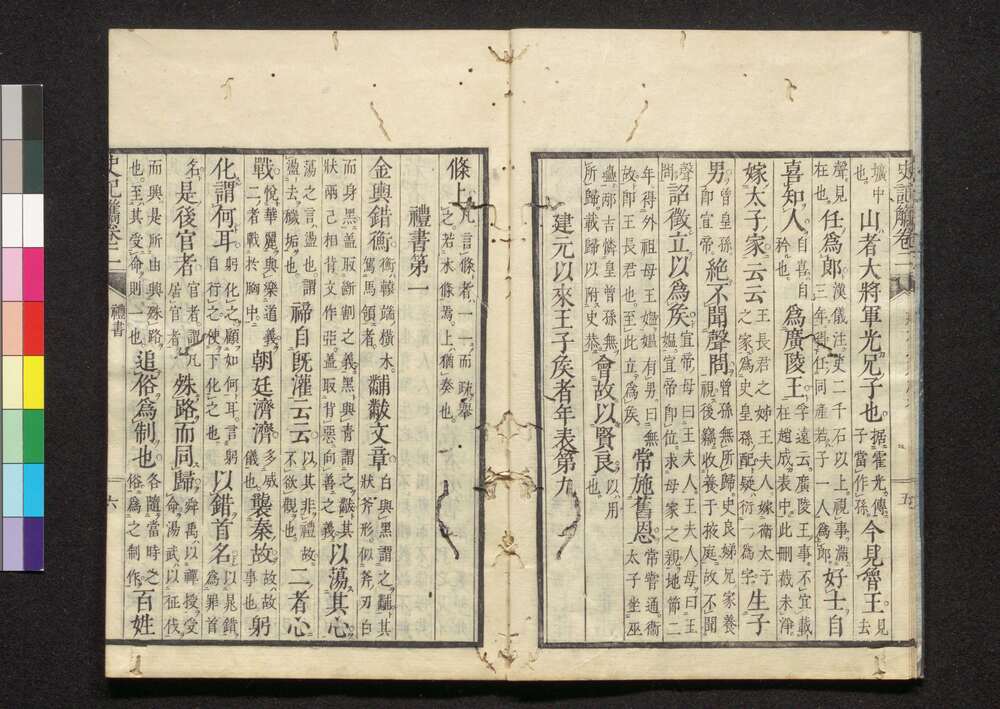 史記觽卷二 五
壙中也 山者大將軍光兄子也 据霍光傳子當作孫 今見魯王 見去
聲見在也 任為郎 漢儀注吏二千石以上視事滿三年得任同產若子一人為郎 好士自
喜知人 自喜自矜也 為廣陵王 孚遠云廣陵王事不宜載在趙成表中此刪截未淨
嫁太子家云云 王長君之姊王夫人嫁衞太子之家為史皇孫配疑衍一為字 生子
男 曾皇孫即宣帝 絕不聞聲問 曾孫無所歸史良娣兄家養視後竊收養于掖庭故不聞
聲問 詔徵立以為矦 宣帝母曰王夫人母曰王媼宣帝即位求母家之親地節二
年得外祖母王媼媼有男曰無故即王長君也至此立為矦 常施舊恩 常嘗通衞太子坐巫
蠱邴吉憐皇曾孫無所歸載歸以附史恭 會故以賢良 以用也
建元以來王子矦者年表第九
條上 凡言條者一一而疏舉之若木條焉上猶奏也
禮書第一
金輿錯衡 衡轅端橫木駕馬領者 黼黻文章 白與黑謂之黼其狀斧形似斧刃白
而身黑蓋取斷割之義黑與青謂之黻其狀兩己相背文作亞蓋取背惡向善之義 以蕩其心
蕩之言盪也謂盪去穢垢也 禘自既灌云云 以其非禮故不欲觀也 二者心
戰 悅華麗與樂道義二者戰於胸中 朝廷濟濟 多威儀也 襲秦故 故故事也 躬
化謂何耳 躬化之顧如何耳言躬自行之使下化之也 以錯首名 以晁錯為罪首
名 是後官者 官者謂凡居官者 殊路而同歸 舜禹以禪授受命湯武以征伐
而興是所由興殊路也至其受命則一也 追俗為制也 各隨當時之俗為之制作 百姓
史記觽卷二 禮書 六